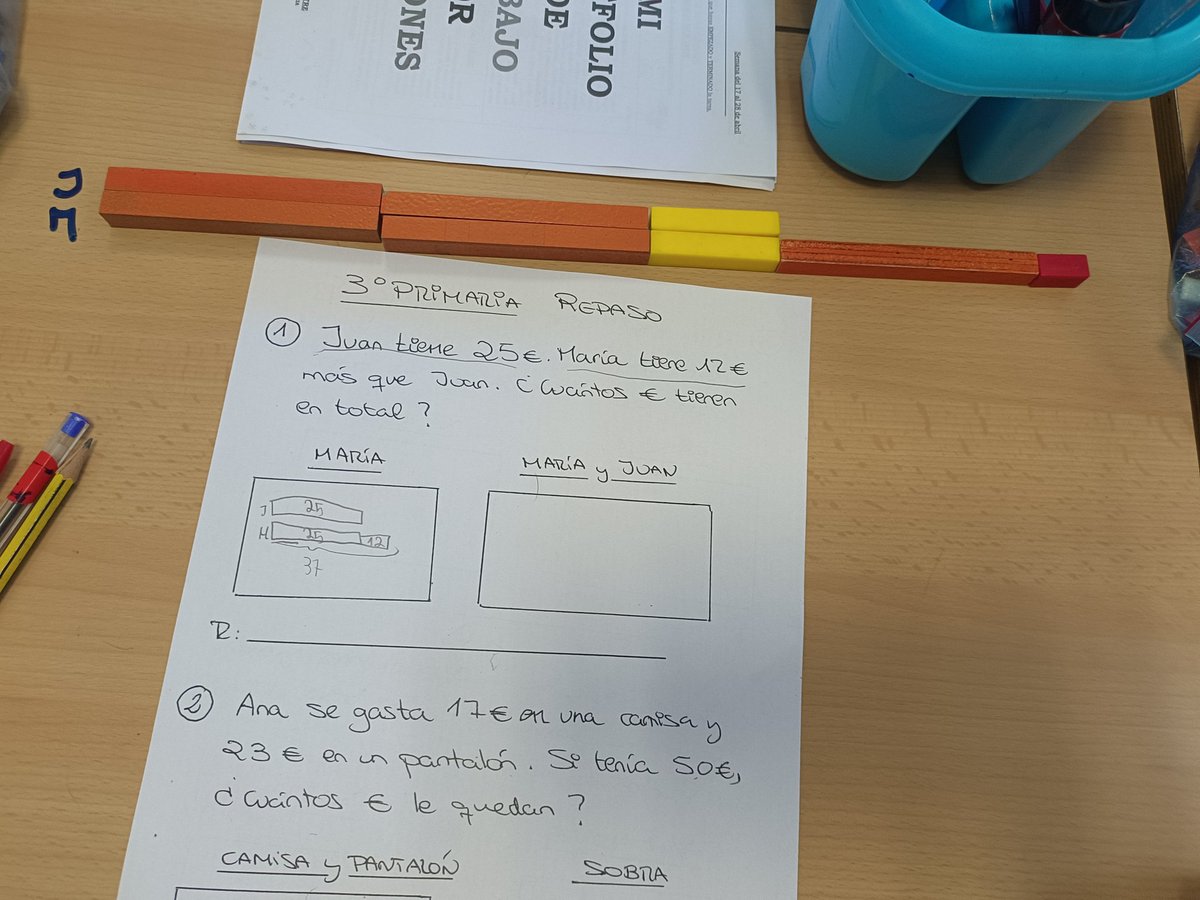 MI
FOLIO
DE
BAJO
OR
ONES
que hayas EMPEZADO y TERMINADO la tarea.
Semana del 17 al 28 de abril
J
M
3º PRIMARIA REPASO
1 Juan tiene 25€. María tiene 12€
más que Juan. ¿Cuántos € tienen
en total?
MARÍA
MARÍA y JUAN
J 25
M 25 12
37
R:
2 Ana se gasta 17€ en una camisa y
23 € en un pantalón. Si tenía 50€,
¿Cuántos € le quedan?
CAMISA y PANTALÓN
SOBRA